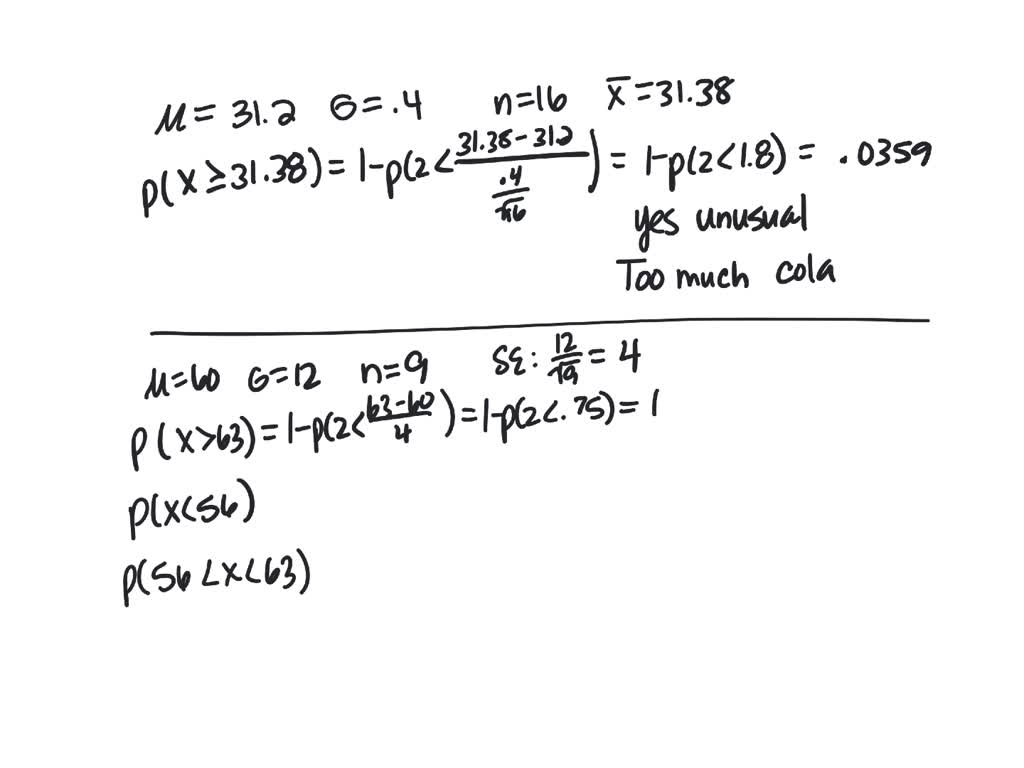 μ = 31.2 σ = .4 n=16 x̄ = 31.38
p(x ≥ 31.38) = 1-p(z < (31.38-31.2)/(.4/√16)) = 1-p(z<1.8) = .0359
yes unusual
Too much cola
μ=60 σ=12 n=9 SE: 12/√9 = 4
p(x>63) = 1-p(z< (63-60)/4) = 1-p(z<.75) = 1
p(x<56)
p(56<x<63)